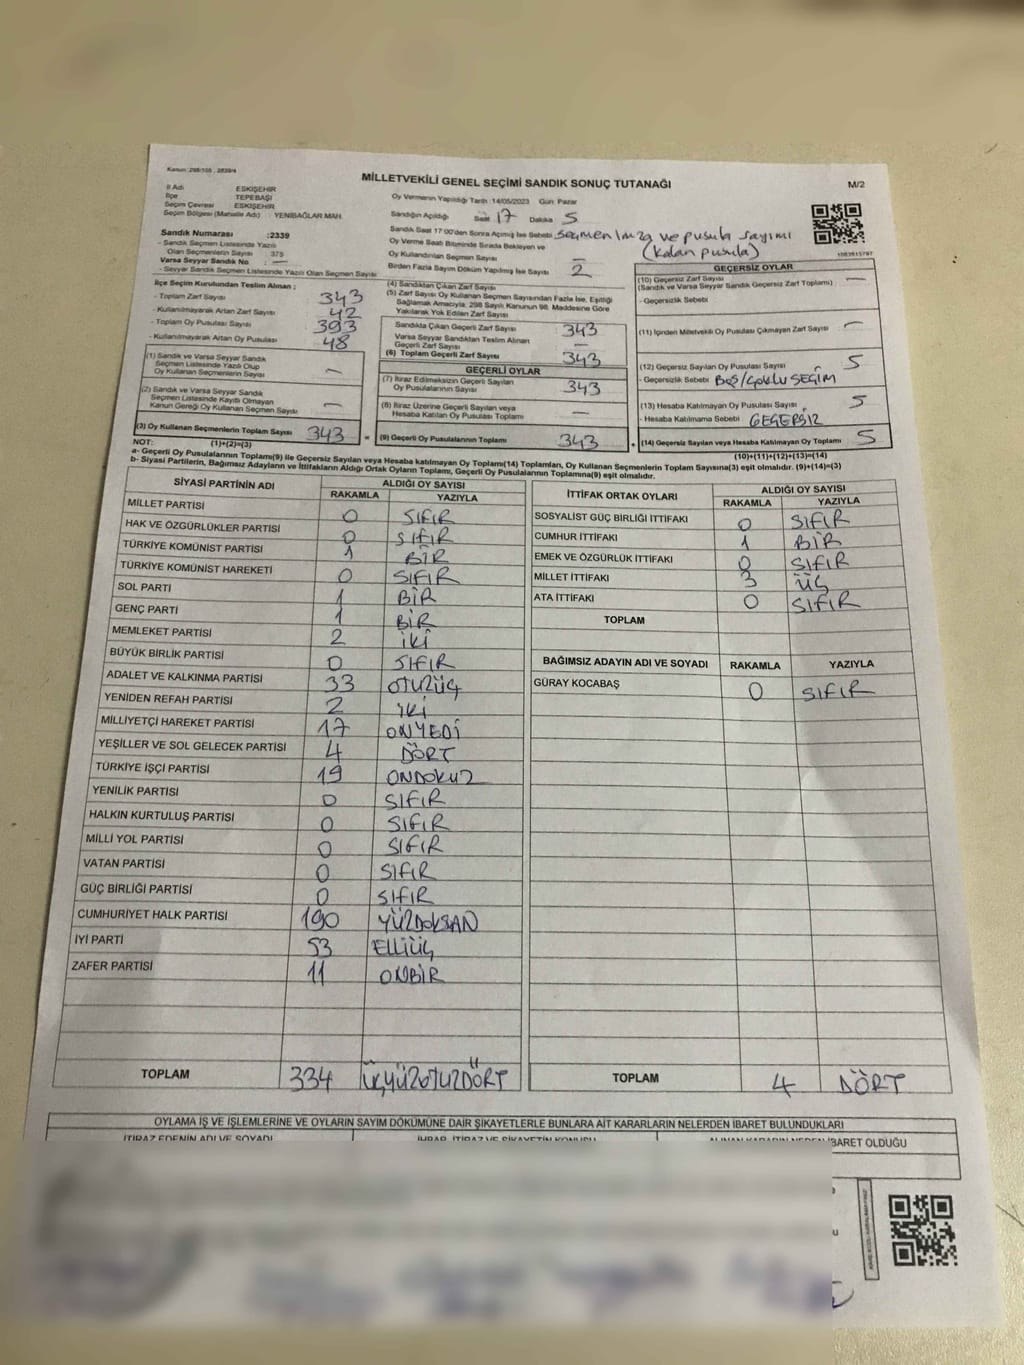 Kanun: 298/105 , 2839/4
MİLLETVEKİLİ GENEL SEÇİMİ SANDIK SONUÇ TUTANAĞI
M/2
İl Adı ESKİŞEHİR
İlçe TEPEBAŞI
Seçim Çevresi ESKİŞEHİR
Seçim Bölgesi (Mahalle Adı) YENİBAĞLAR MAH.
Sandık Numarası :2339
- Sandık Seçmen Listesinde Yazılı
Olan Seçmenlerin Sayısı 375
Varsa Seyyar Sandık No : —
- Seyyar Sandık Seçmen Listesinde Yazılı Olan Seçmen Sayısı
Oy Vermenin Yapıldığı Tarih :14/05/2023 Gün: Pazar
Sandığın Açıldığı Saat 17 Dakika 5
Sandık Saat 17:00'den Sonra Açılmış İse Sebebi Seçmen imza ve pusula sayımı
(kalan pusula)
Oy Verme Saati Bitiminde Sırada Bekleyen ve
Oy Kullandırılan Seçmen Sayısı —
Birden Fazla Sayım Döküm Yapılmış İse Sayısı 2
İlçe Seçim Kurulundan Teslim Alınan ;
- Toplam Zarf Sayısı 343
- Kullanılmayarak Artan Zarf Sayısı 42
- Toplam Oy Pusulası Sayısı 393
- Kullanılmayarak Artan Oy Pusulası 48
(1) Sandık ve Varsa Seyyar Sandık
Seçmen Listesinde Yazılı Olup
Oy Kullanan Seçmenlerin Sayısı —
(2) Sandık ve Varsa Seyyar Sandık
Seçmen Listesinde Kayıtlı Olmayan
Kanun Gereği Oy Kullanan Seçmen Sayısı —
(3) Oy Kullanan Seçmenlerin Toplam Sayısı 343
(1)+(2)=(3)
(4) Sandıktan Çıkan Zarf Sayısı
(5) Zarf Sayısı Oy Kullanan Seçmen Sayısından Fazla İse, Eşitliği
Sağlamak Amacıyla, 298 Sayılı Kanunun 98. Maddesine Göre
Yakılarak Yok Edilen Zarf Sayısı
Sandıkta Çıkan Geçerli Zarf Sayısı 343
Varsa Seyyar Sandıktan Teslim Alınan
Geçerli Zarf Sayısı —
(6) Toplam Geçerli Zarf Sayısı 343
GEÇERLİ OYLAR
(7) İtiraz Edilmeksizin Geçerli Sayılan
Oy Pusulalarının Sayısı 343
(8) İtiraz Üzerine Geçerli Sayılan veya
Hesaba Katılan Oy Pusulası Toplamı —
= (9) Geçerli Oy Pusulalarının Toplamı 343 +
GEÇERSİZ OYLAR
(10) Geçersiz Zarf Sayısı
(Sandık ve Varsa Seyyar Sandık Geçersiz Zarf Toplamı) —
- Geçersizlik Sebebi
(11) İçinden Milletvekili Oy Pusulası Çıkmayan Zarf Sayısı —
(12) Geçersiz Sayılan Oy Pusulası Sayısı 5
- Geçersizlik Sebebi Boş/ÇOKLU SEÇİM
(13) Hesaba Katılmayan Oy Pusulası Sayısı 5
- Hesaba Katılmama Sebebi GEÇERSİZ
(14) Geçersiz Sayılan veya Hesaba Katılmayan Oy Toplamı 5
(10)+(11)+(12)+(13)=(14)
NOT:
a- Geçerli Oy Pusulalarının Toplamı(9) ile Geçersiz Sayılan veya Hesaba katılmayan Oy Toplamı(14) Toplamları, Oy Kullanan Seçmenlerin Toplam Sayısına(3) eşit olmalıdır.
b- Siyasi Partilerin, Bağımsız Adayların ve İttifakların Aldığı Ortak Oyların Toplamı, Geçerli Oy Pusulalarının Toplamına(9) eşit olmalıdır. (9)+(14)=(3)
SİYASİ PARTİNİN ADI ALDIĞI OY SAYISI
RAKAMLA YAZIYLA
MİLLET PARTİSİ 0 SIFIR
HAK VE ÖZGÜRLÜKLER PARTİSİ 0 SIFIR
TÜRKİYE KOMÜNİST PARTİSİ 1 BİR
TÜRKİYE KOMÜNİST HAREKETİ 0 SIFIR
SOL PARTİ 1 BİR
GENÇ PARTİ 1 BİR
MEMLEKET PARTİSİ 2 İKİ
BÜYÜK BİRLİK PARTİSİ 0 SIFIR
ADALET VE KALKINMA PARTİSİ 33 OTUZÜÇ
YENİDEN REFAH PARTİSİ 2 İKİ
MİLLİYETÇİ HAREKET PARTİSİ 17 ONYEDİ
YEŞİLLER VE SOL GELECEK PARTİSİ 4 DÖRT
TÜRKİYE İŞÇİ PARTİSİ 19 ONDOKUZ
YENİLİK PARTİSİ 0 SIFIR
HALKIN KURTULUŞ PARTİSİ 0 SIFIR
MİLLİ YOL PARTİSİ 0 SIFIR
VATAN PARTİSİ 0 SIFIR
GÜÇ BİRLİĞİ PARTİSİ 0 SIFIR
CUMHURİYET HALK PARTİSİ 190 YÜZDOKSAN
İYİ PARTİ 53 ELLİÜÇ
ZAFER PARTİSİ 11 ONBİR
TOPLAM 334 ÜÇYÜZOTUZDÖRT
İTTİFAK ORTAK OYLARI ALDIĞI OY SAYISI
RAKAMLA YAZIYLA
SOSYALİST GÜÇ BİRLİĞİ İTTİFAKI 0 SIFIR
CUMHUR İTTİFAKI 1 BİR
EMEK VE ÖZGÜRLÜK İTTİFAKI 0 SIFIR
MİLLET İTTİFAKI 3 ÜÇ
ATA İTTİFAKI 0 SIFIR
TOPLAM
BAĞIMSIZ ADAYIN ADI VE SOYADI RAKAMLA YAZIYLA
GÜRAY KOCABAŞ 0 SIFIR
TOPLAM 4 DÖRT
OYLAMA İŞ VE İŞLEMLERİNE VE OYLARIN SAYIM DÖKÜMÜNE DAİR ŞİKAYETLERLE BUNLARA AİT KARARLARIN NELERDEN İBARET BULUNDUKLARI
İTİRAZ EDENİN ADI VE SOYADI İHBAR, İTİRAZ VE ŞİKAYETİN KONUSU ALINAN KARARIN NEDEN İBARET OLDUĞU